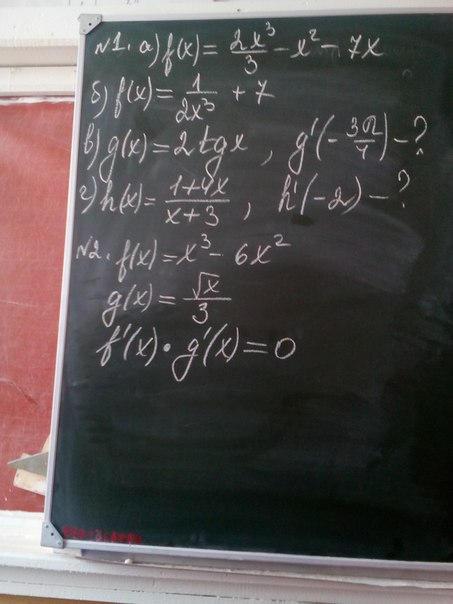 №1. а) f(x) = 2x³/3 - x² - 7x
б) f(x) = 1/2x³ + 7
в) g(x) = 2tgx, g'(-3π/4) - ?
г) h(x) = 1+4x/x+3, h'(-2) - ?
№2. f(x) = x³ - 6x²
g(x) = √x/3
f'(x) · g'(x) = 0